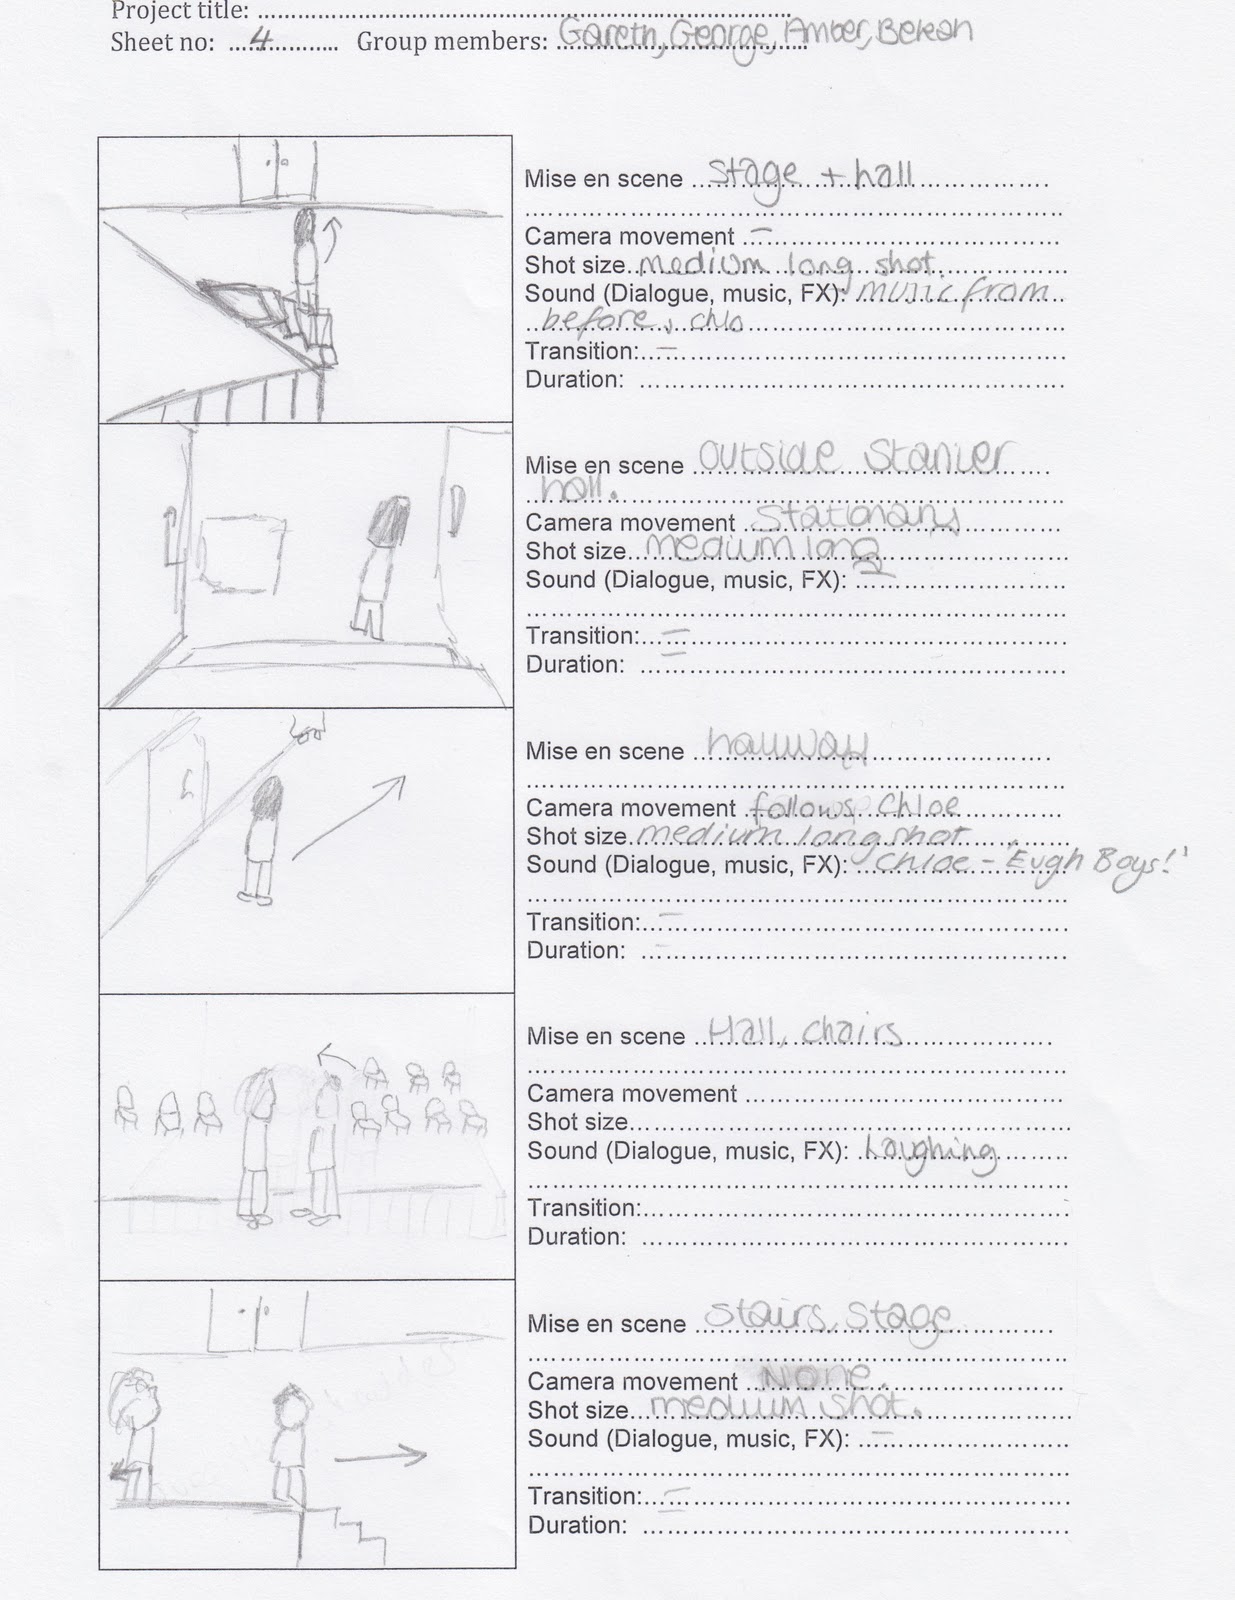 Project title:
Sheet no: 4 Group members: Gareth, George, Amber, Bekah
Mise en scene stage + hall
Camera movement –
Shot size medium long shot
Sound (Dialogue, music, FX): music from
before, chlo
Transition: –
Duration:
Mise en scene outside Stanier
hall.
Camera movement Stationary
Shot size medium long
Sound (Dialogue, music, FX): –
Transition: –
Duration:
Mise en scene hallway
Camera movement follows Chloe
Shot size medium long shot
Sound (Dialogue, music, FX): Chloe - 'Eugh Boys!'
Transition: –
Duration: –
Mise en scene Hall, chairs
Camera movement
Shot size
Sound (Dialogue, music, FX): Laughing
Transition:
Duration:
Mise en scene Stairs, Stage
Camera movement None.
Shot size medium shot.
Sound (Dialogue, music, FX): –
Transition: –
Duration: